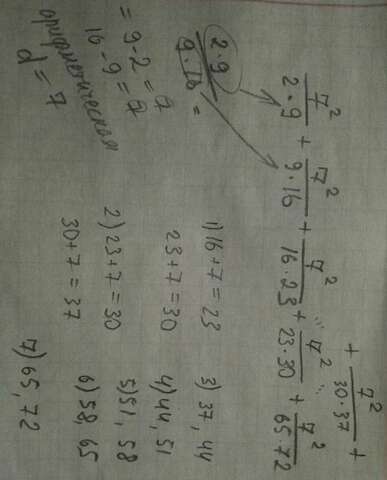 7²/2·9 + 7²/9·16 + 7²/16·23 + 7²/23·30 ... + 7²/65 72
+ 7²/30·37 +
2·9/9·16 =
= 9-2=7
16-9=7
арифметическая
d=7
1) 16+7=23
23+7=30
2) 23+7=30
30+7=37
3) 37, 44
4) 44, 51
5) 51, 58
6) 58, 65
7) 65, 72